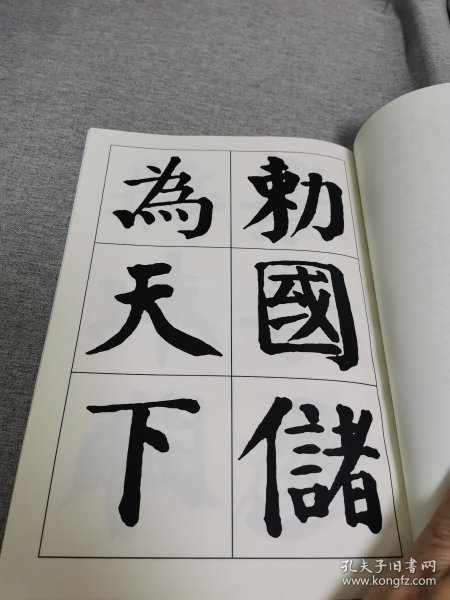 勅國儲
為天下
孔夫子旧书网
www.kongfz.com